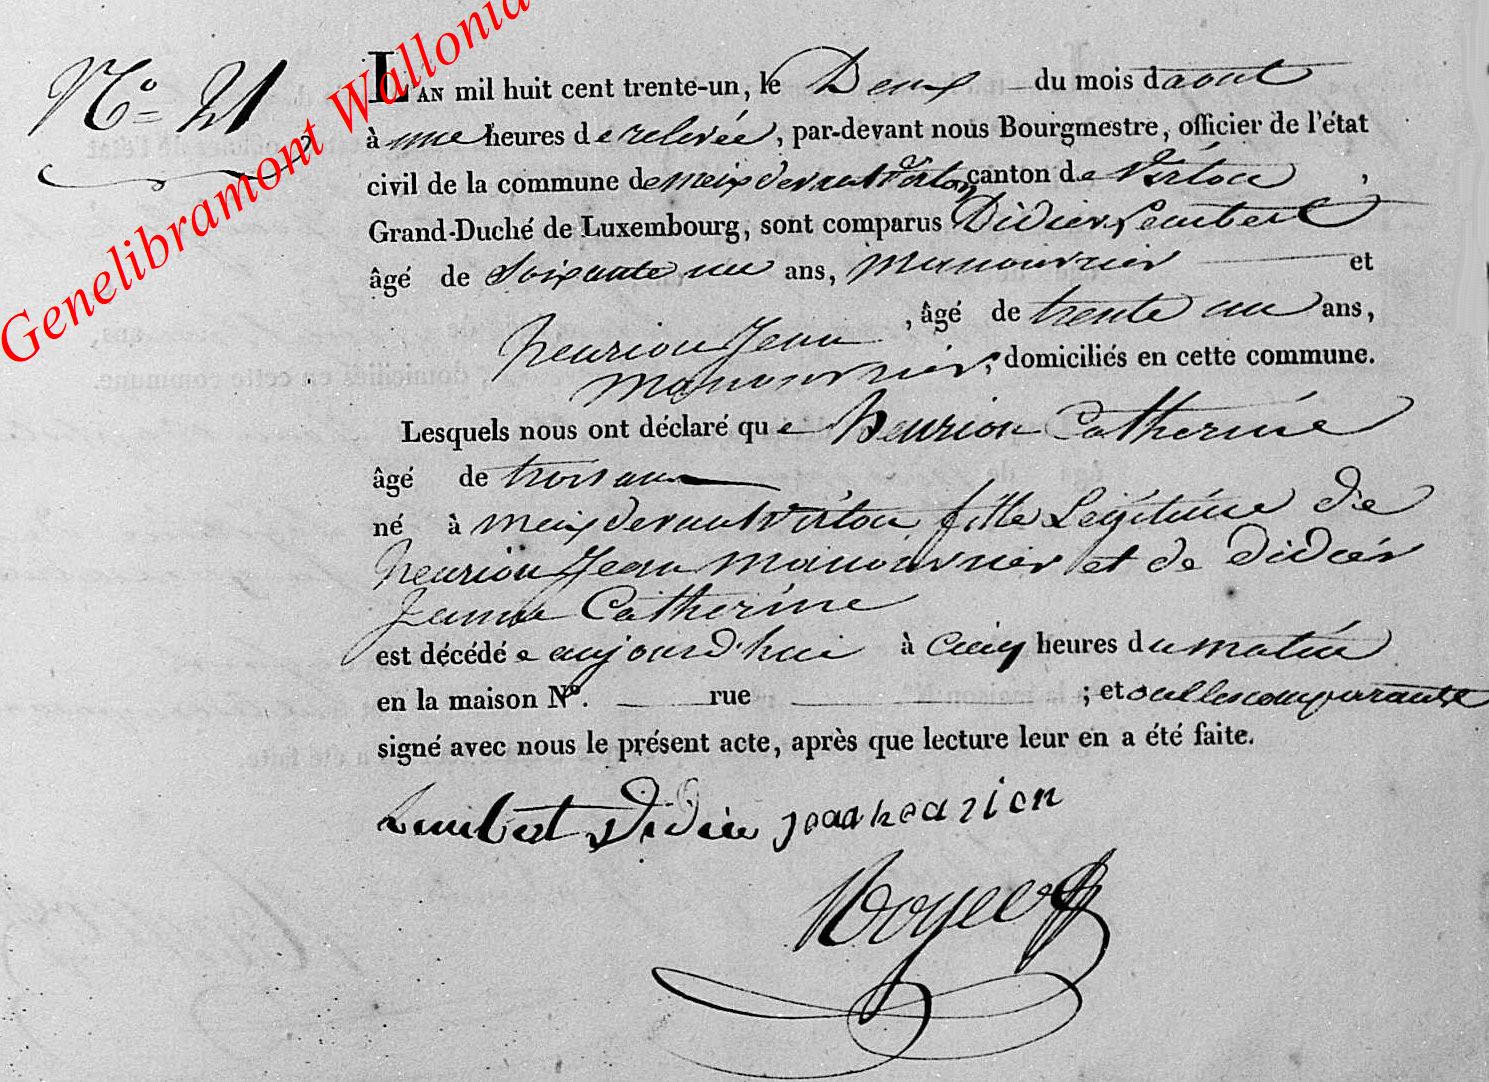 Genelibramont Wallonia
N.° 21
L'AN mil huit cent trente-un, le Deux du mois d aout
à une heures de relevée, par-devant nous Bourgmestre, officier de l'état
civil de la commune de meix devant Virton canton de Virton,
Grand-Duché de Luxembourg, sont comparus Didier Lambert
âgé de Soixante un ans, manouvrier et
henrion Jean, âgé de trente un ans,
manouvrier, domiciliés en cette commune.
Lesquels nous ont déclaré que henrion Catherine
âgé de trois ans
né à meix devant Virton fille Légitime de
henrion Jean manouvrier et de didier
Jeanne Catherine
est décédée aujourd'hui à Cinq heures du matin
en la maison N°. rue ; et les comparants
signé avec nous le présent acte, après que lecture leur en a été faite.
Lambert Didier jean henrion